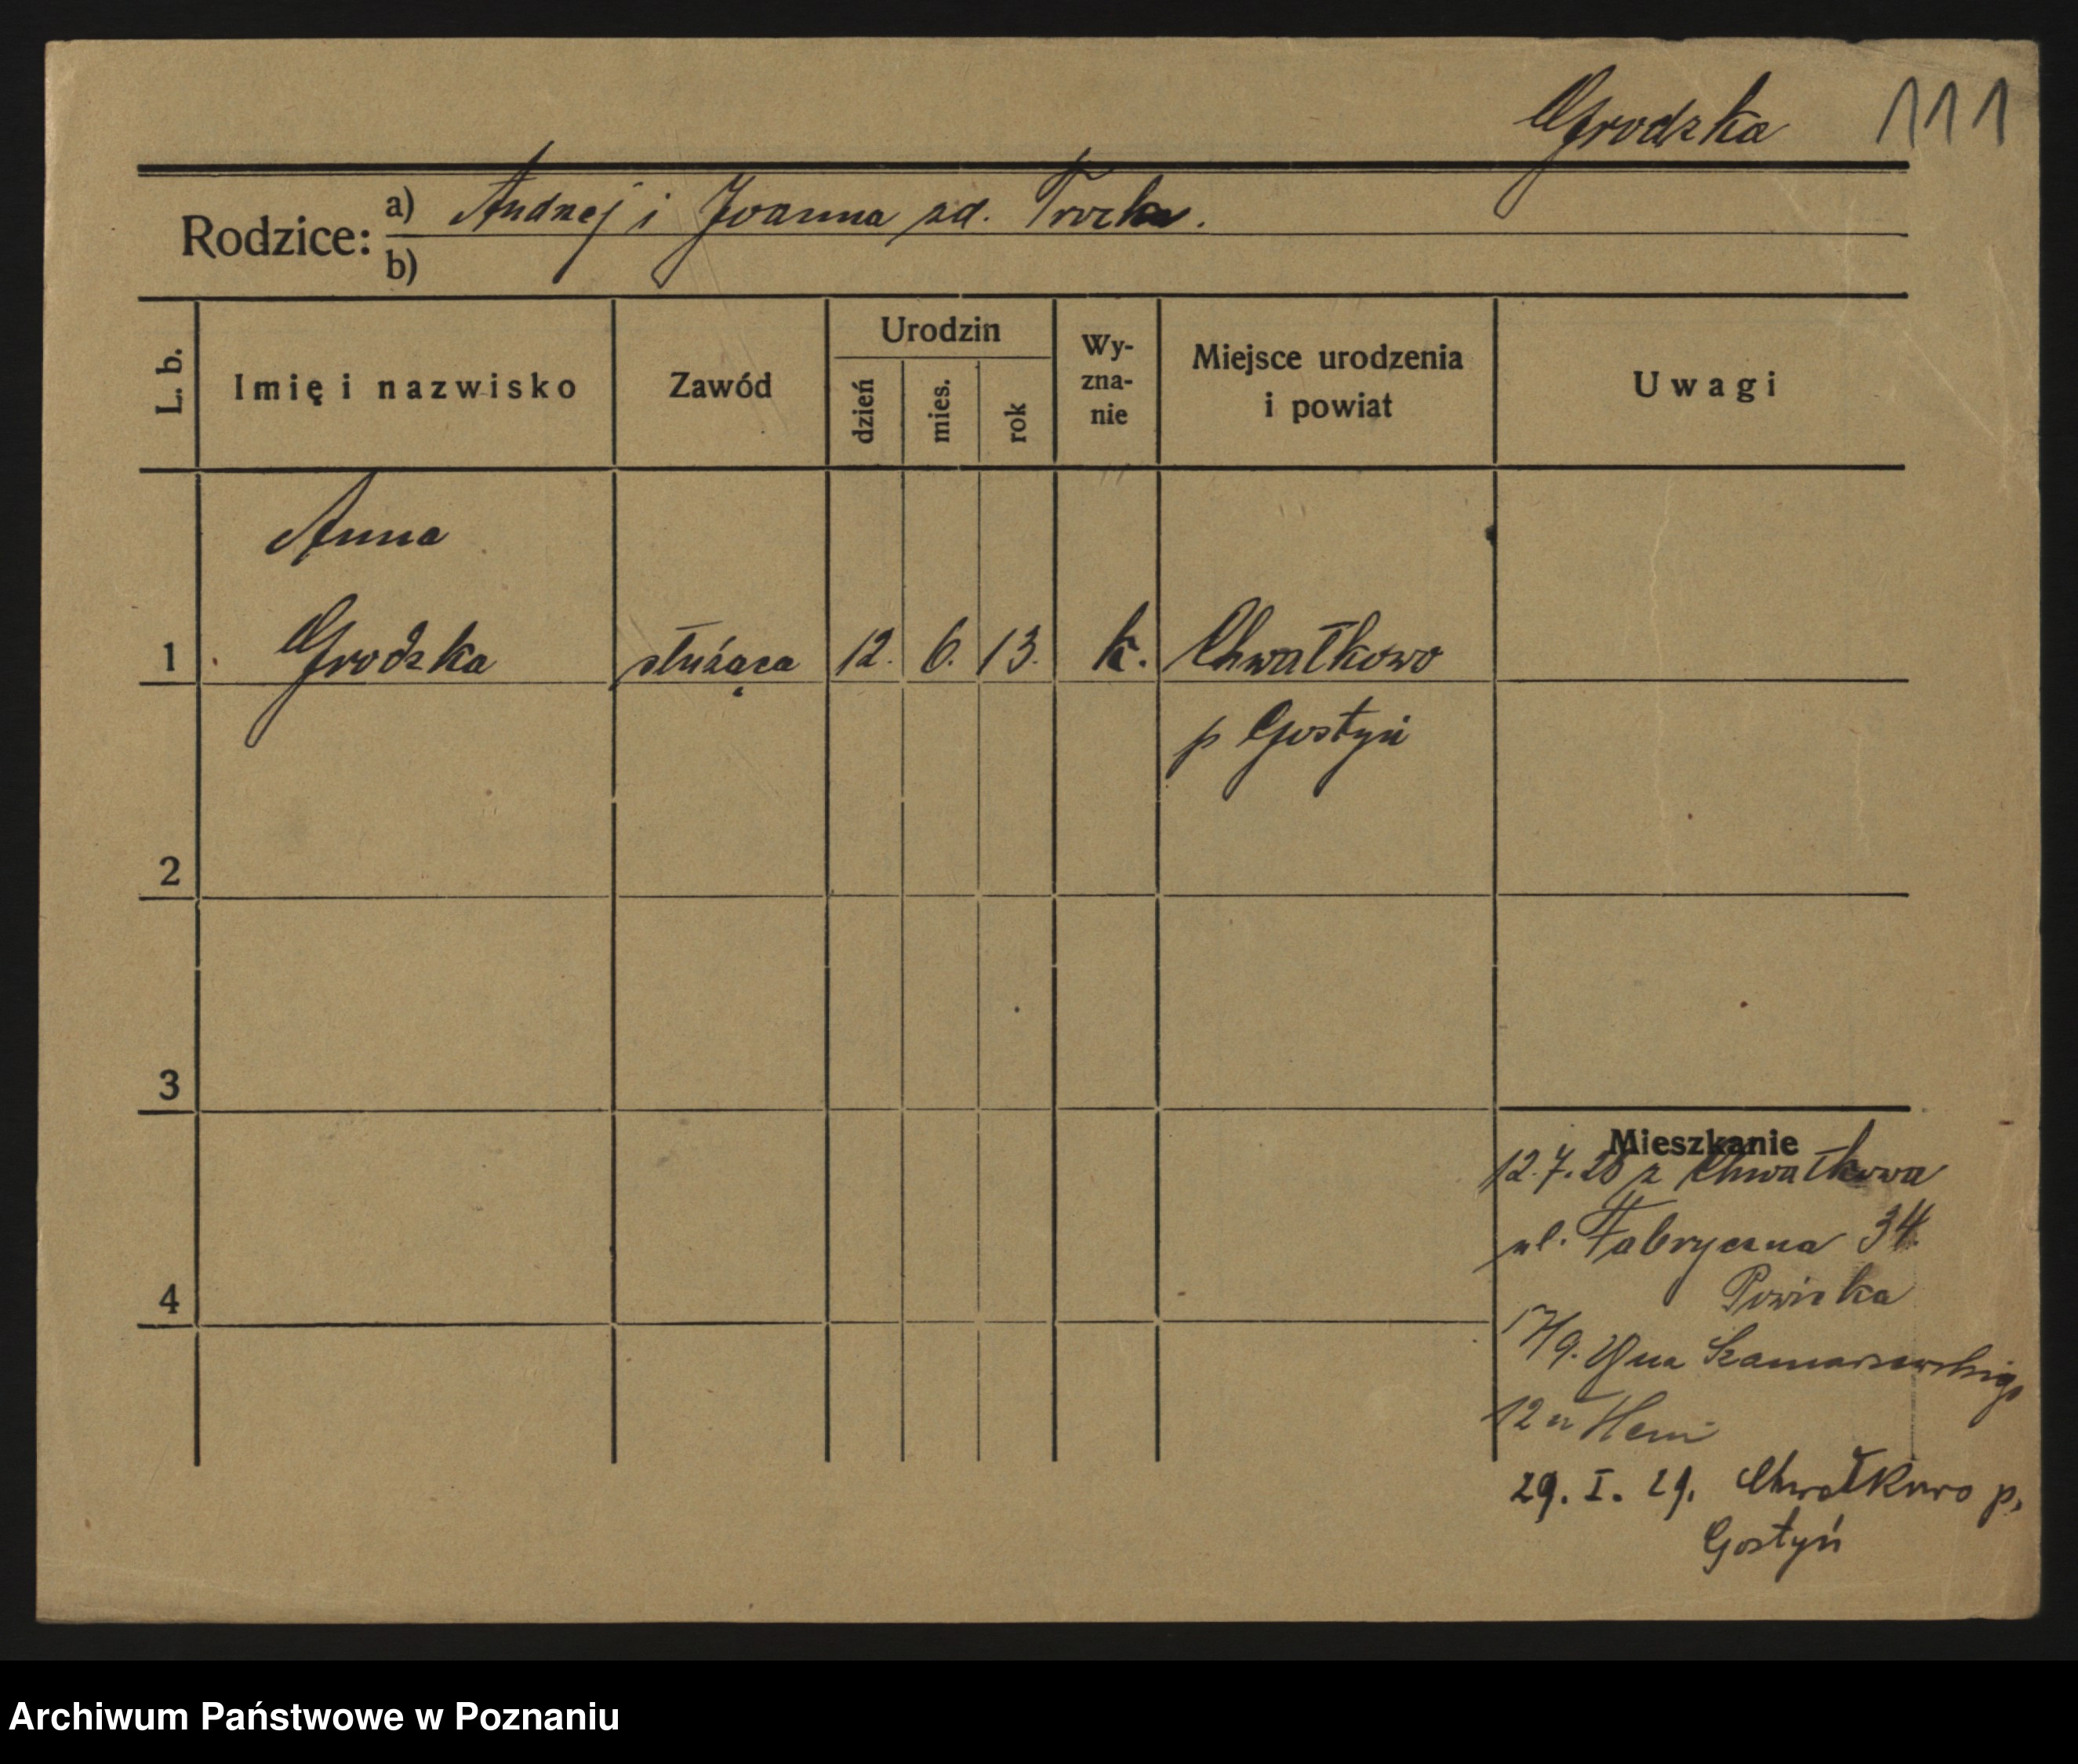 Grodzka 111
Rodzice: a) Andrzej i Joanna zd. Trocka.
b)
L. b. Imię i nazwisko Zawód Urodzin dzień mies. rok Wy-zna-nie Miejsce urodzenia i powiat Uwagi
Anna
1 Grodzka służąca 12. 6. 13. k. Chwałkowo
p Gostyń
2
3
Mieszkanie
12.7.28 z Chwałkowa
ul. Fabryczna 34.
4
17/9. na Szamarzewskiego
12 u
29. I. 29. Chwałkowo p.
Gostyń
Archiwum Państwowe w Poznaniu